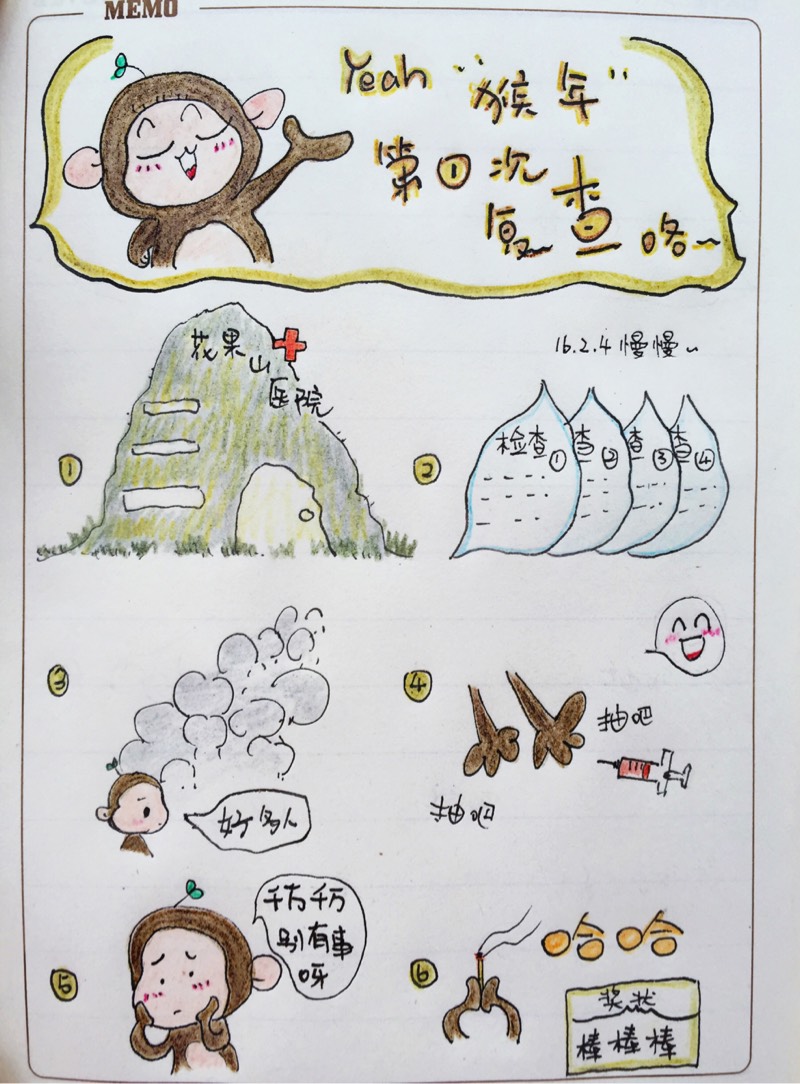 MEMO
Yeah "猴年"
第①次
复查咯~
花果山
医院
①
16.2.4 慢慢~
②
检查①
查②
查③
查④
③
好多人
④
抽吧
抽吧
⑤
千万千万
别有事
呀
⑥
哈哈
奖状
棒棒棒